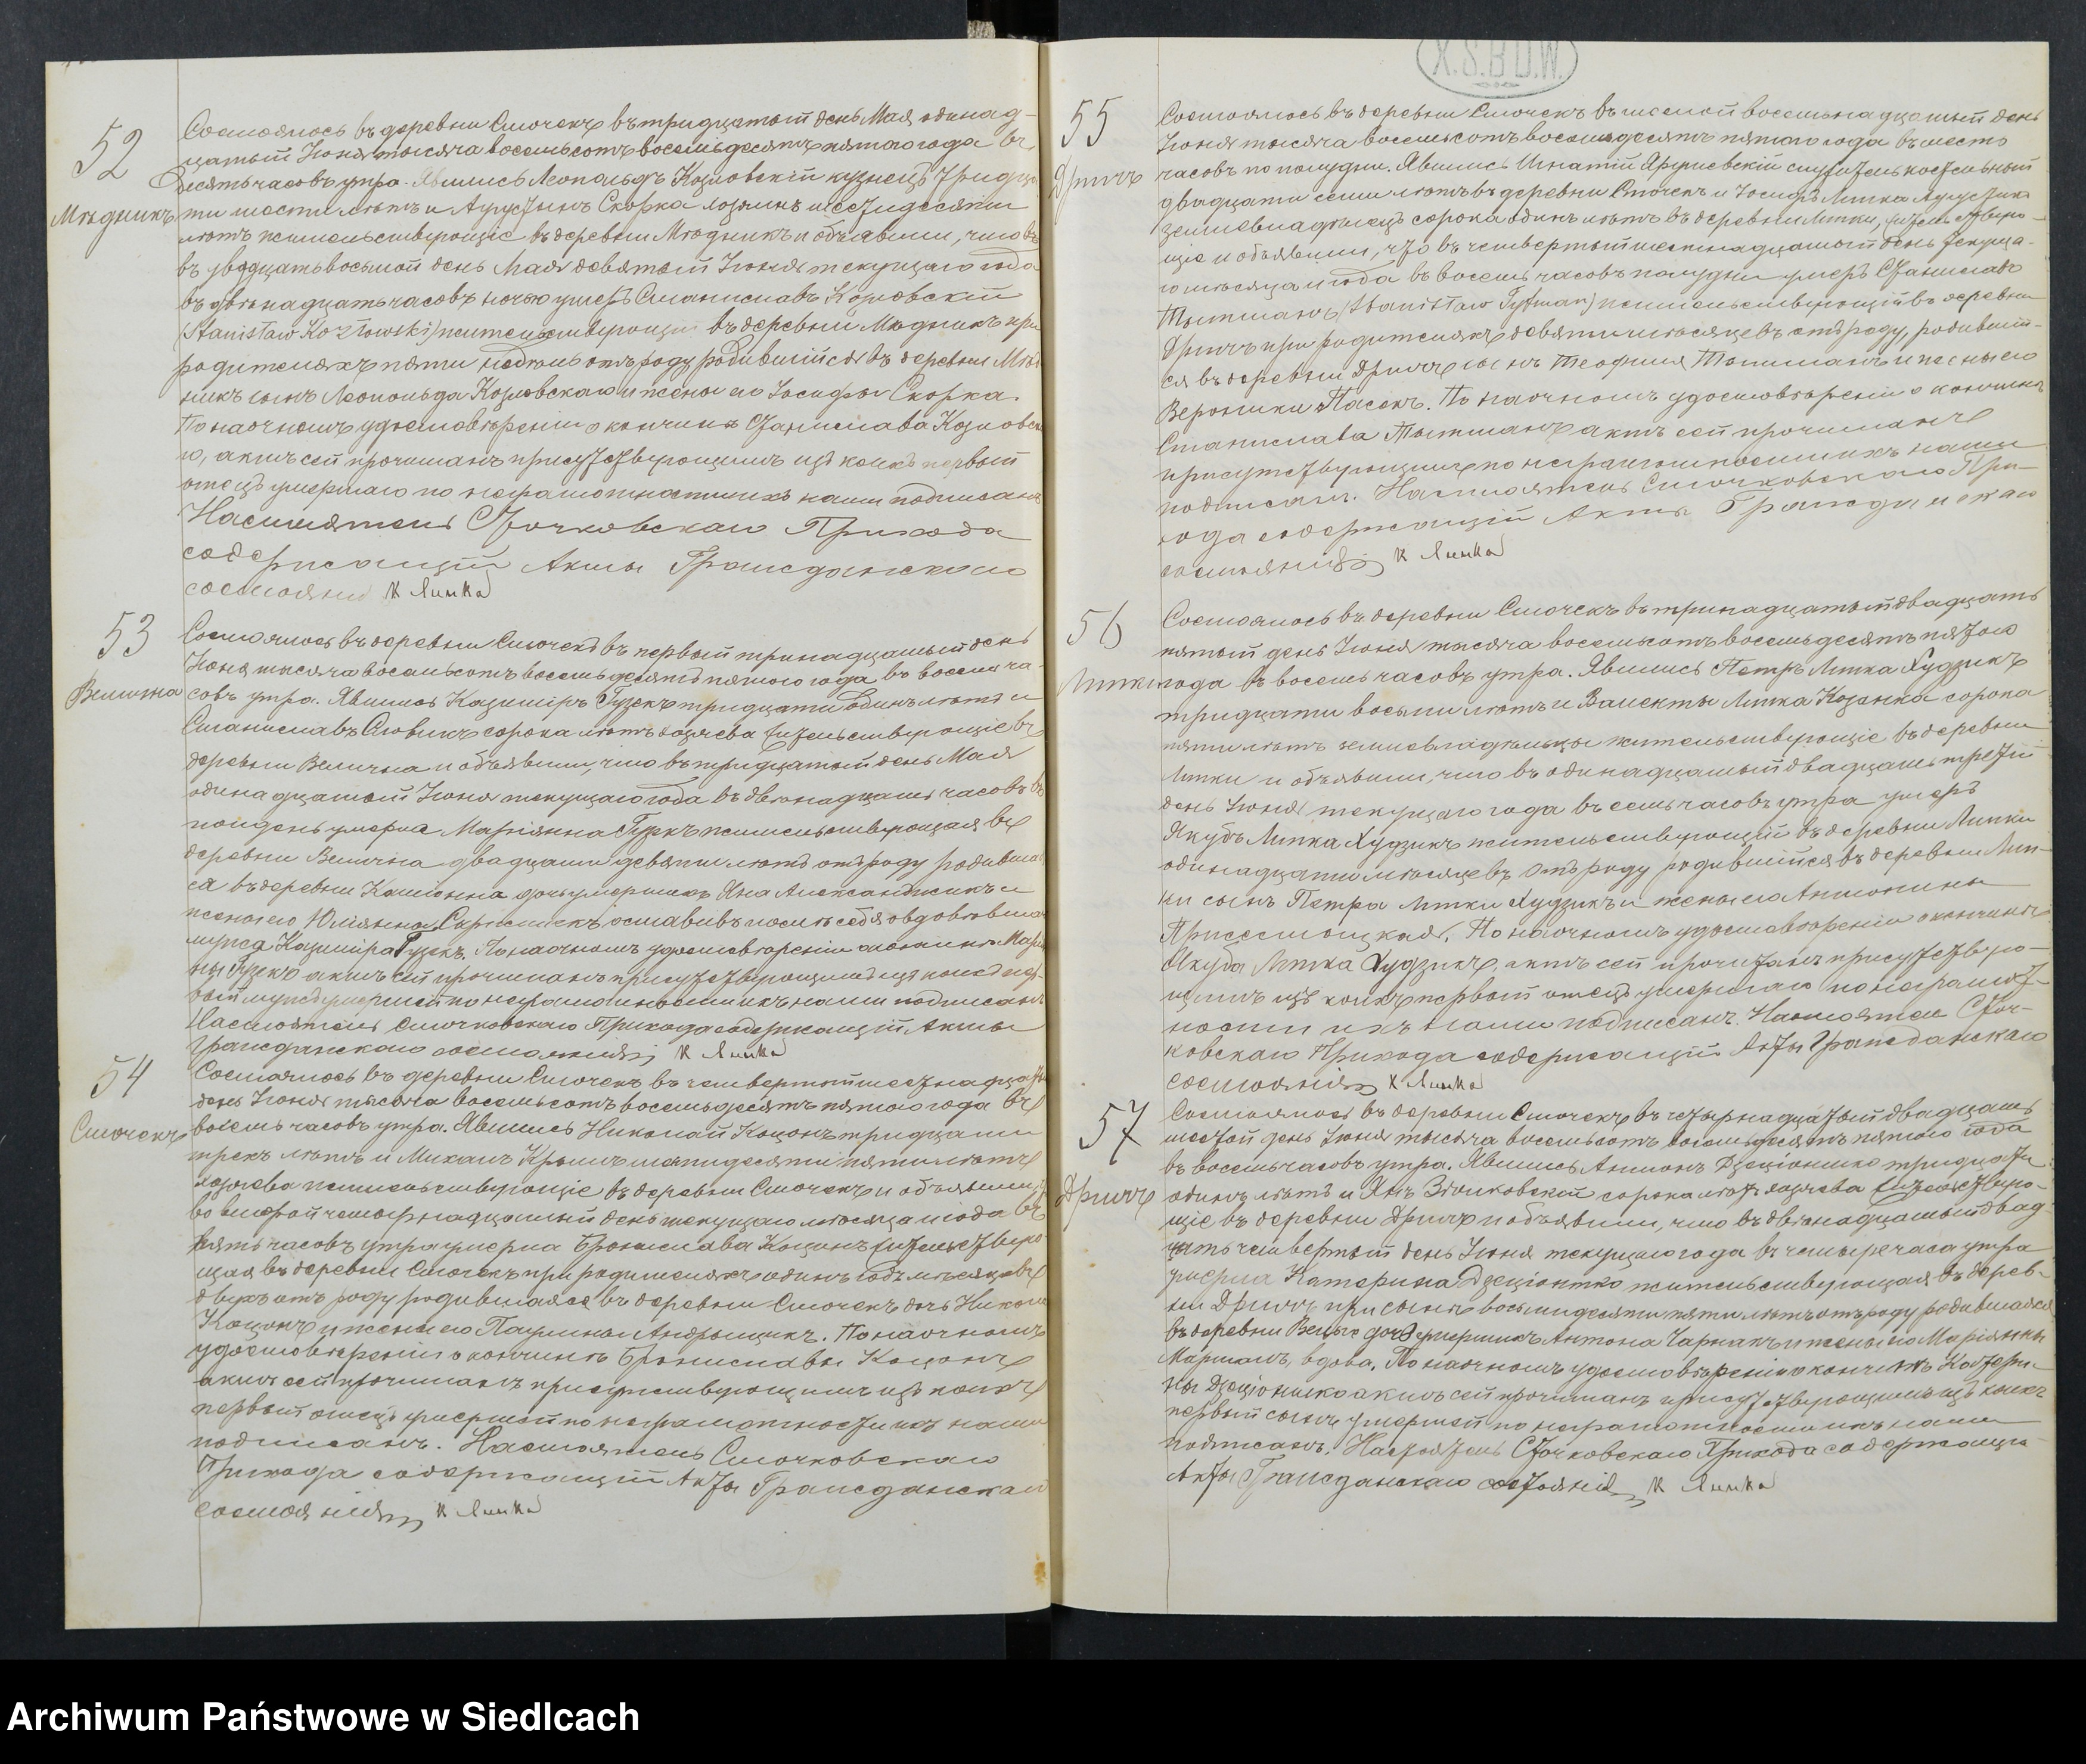 52
Мѣдникъ
Состоялось въ деревни Сточекъ въ тридцатый день Мая одинад-
цатый Іюня тысяча восемьсотъ восемьдесятъ пятаго года въ
десять часовъ утра. Явились Леопольдъ Козловскій кузнецъ тридца
ти шести лѣтъ и Аугустынъ Скорка хозяинъ шестидесяти
лѣтъ жительствующіе въ деревни Мѣдникъ и объявили, что
въ двадцать восьмой день Мая девятый Іюня текущаго года
въ двѣнадцать часовъ ночью умеръ Станиславъ Козловскій
(Stanisław Kozłowski) жительствующій въ деревни Мѣдникъ при
родителяхъ пяти недѣль отъ роду родившійся въ деревни Мѣд
никъ сынъ Леопольда Козловскаго и жены его Іосифы Скорка.
По наочномъ удостовѣреніи о кончинѣ Станислава Козловска
го, актъ сей прочитанъ присутствующимъ изъ коихъ первый
отецъ умершаго по неграмотности ихъ нами подписанъ
Настоятель Сточковскаго Прихода
содержащій Акты Гражданскаго
состоянія К Липка
53
Велична
Состоялось въ деревни Сточекъ въ первый тринадцатый день
Іюня тысяча восемьсотъ восемьдесятъ пятаго года въ восемь ча-
совъ утра. Явились Казиміръ Гузекъ тридцати одинъ лѣтъ и
Станиславъ Словикъ сорока лѣтъ хозяева жительствующіе въ
деревни Велична и объявили, что въ тридцатый день Мая
одинадцатый Іюня текущаго года въ двѣнадцать часовъ въ
полдень умерла Маріянна Гузекъ жительствующая въ
деревни Велична двадцати девяти лѣтъ отъ роду родивша
ся въ деревни дочь умершихъ Яна и
жены его Юліянна оставивъ послѣ себя овдовѣвша
мужа Казиміра Гузекъ. По наочномъ удостовѣреніи о кончинѣ Марія
ны Гузекъ актъ сей прочитанъ присутствующимъ изъ коихъ пер-
вый мужъ умершей по неграмотности ихъ нами подписанъ
Настоятель Сточковскаго Прихода содержащій Акты
Гражданскаго состоянія К Липка
54
Сточекъ
Состоялось въ деревни Сточекъ въ четвертый шестнадцаты
день Іюня тысяча восемьсотъ восемьдесятъ пятаго года въ
восемь часовъ утра. Явились Николай Коцонъ тридцати
трехъ лѣтъ и Михалъ Крыль пятидесяти пяти лѣтъ
хозяева жительствующіе въ деревни Сточекъ и объявили,
во второй четырнадцатый день текущаго мѣсяца и года въ
пять часовъ утра умерла Брониславa Коцонъ жительствую
щая въ деревни Сточекъ при родителяхъ одинъ годъ мѣсяцовъ
двухъ отъ роду родившаяся въ деревни Сточекъ дочь Никола
Коцонъ и жены его Паулины Андрыщикъ. По наочномъ
удостовѣреніи о кончинѣ Брониславы Коцонъ
актъ сей прочитанъ присутствующимъ изъ коихъ
первый отецъ умершей по неграмотности ихъ нами
подписанъ. Настоятель Сточковскаго
Прихода содержащій Акты Гражданскаго
состоянія К Липка
X.S.B D.W.
55
Дрыпъ
Состоялось въ деревни Сточекъ въ шестой восемьнадцатый день
Іюня тысяча восемьсотъ восемьдесятъ пятаго года въ шесть
часовъ по полудни. Явились Игнатій служитель костельный
двадцати семи лѣтъ въ деревни Сточекъ и Іосифъ Липка
землевладѣлецъ сорока одинъ лѣтъ въ деревни Липки, жительствую-
щіе и объявили, что въ четвертый шестнадцатый день текуща-
го мѣсяца и года въ восемь часовъ полудни умеръ Станиславъ
Тытманъ (Stanisław Tytman) жительствующій въ деревни
при родителяхъ девяти мѣсяцевъ отъ роду, родившій-
ся въ деревни сынъ Теофиля Тытманъ и жены его
Вероники Пасекъ. По наочномъ удостовѣреніи о кончинѣ
Станислава Тытманъ актъ сей прочитанъ
присутствующимъ по неграмотности ихъ нами
подписанъ. Настоятель Сточковскаго При-
хода содержащій Акты Гражданскаго
состоянія К Липка
56
Липки
Состоялось въ деревни Сточекъ въ тринадцатый двадцать
пятый день Іюня тысяча восемьсотъ восемьдесятъ пятаго
года въ восемь часовъ утра. Явились Петръ Липка Худзикъ
тридцати восьми лѣтъ и Валенты Липка Козанка сорока
пяти лѣтъ землевладѣльцы жительствующіе въ деревни
Липки и объявили, что въ одинадцатый двадцать третій
день Іюня текущаго года въ семь часовъ утра умеръ
Якубъ Липка Худзикъ жительствующій въ деревни Липки
одинадцати мѣсяцевъ отъ роду родившійся въ деревни Лип-
ки сынъ Петра Липки Худзикъ и жены его Антонины
По наочномъ удостовѣреніи о кончинѣ
Якуба Липка Худзикъ, актъ сей прочитанъ присутствую-
щимъ изъ коихъ первый отецъ умершаго по неграмот-
ности ихъ нами подписанъ. Настоятель Сточ-
ковскаго Прихода содержащій Акты Гражданскаго
состоянія К Липка
57
Состоялось въ деревни Сточекъ въ четырнадцатый двадцать
шестой день Іюня тысяча восемьсотъ восемьдесятъ пятаго года
въ восемь часовъ утра. Явились Антонъ тридцати
одинъ лѣтъ и Янъ сорока лѣтъ хозяева жительствую-
щіе въ деревни и объявили, что въ двѣнадцатый двад-
цать четвертый день Іюня текущаго года въ четыре часа утра
умерла Катерина жительствующая въ дерев-
ни при сынѣ восьмидесяти пяти лѣтъ отъ роду родившаяся
въ деревни дочь умершихъ Антона и жены его Маріянны
вдова. По наочномъ удостовѣреніи о кончинѣ Катери-
ны актъ сей прочитанъ присутствующимъ изъ коихъ
первый сынъ умершей по неграмотности ихъ нами
подписанъ. Настоятель Сточковскаго Прихода содержащій
Акты Гражданскаго состоянія К Липка
Archiwum Państwowe w Siedlcach